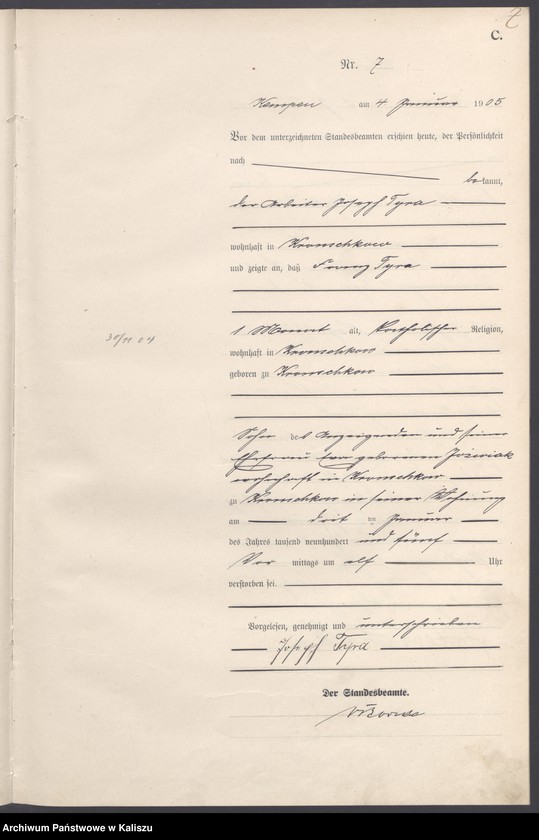 7
C.
Nr. 7
Kempen am 4 Januar 1905
Vor dem unterzeichneten Standesbeamten erschien heute, der Persönlichkeit
nach
bekannt,
der Arbeiter Joseph Tyra
wohnhaft in Kromschkow
und zeigte an, daß Franz Tyra
30/11 04
1 Monat alt, katholischer Religion,
wohnhaft in Kromschkow
geboren zu Kromschkow
Sohn des Anzeigenden und seiner
Ehefrau geborenen
wohnhaft in Kromschkow
zu Kromschkow in seiner Wohnung
am drit ten Januar
des Jahres tausend neunhundert und fünf
Vor mittags um elf Uhr
verstorben sei.
Vorgelesen, genehmigt und unterschrieben
Joseph Tyra
Der Standesbeamte.
Archiwum Państwowe w Kaliszu